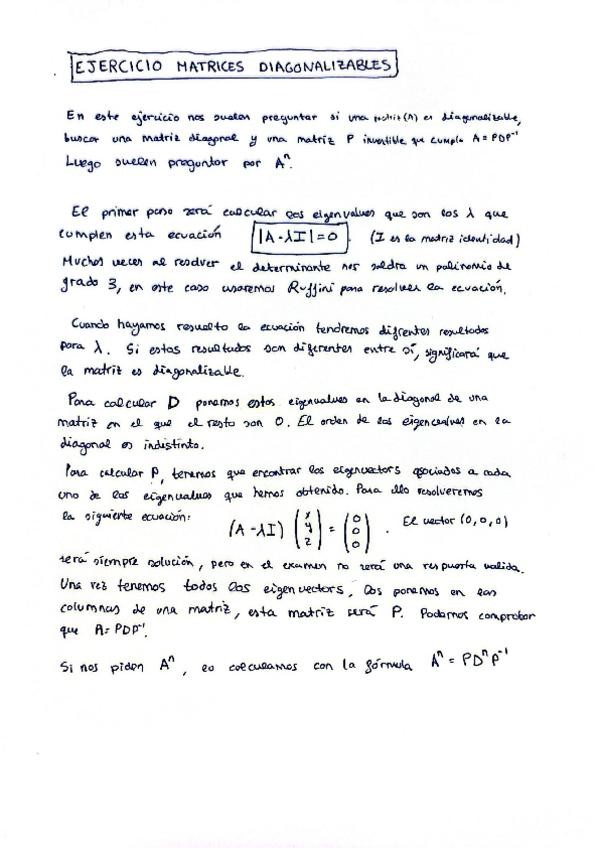 EJERCICIO MATRICES DIAGONALIZABLES
En este ejercicio nos suelen preguntar si una matriz (A) es diagonalizable,
buscar una matriz diagonal y una matriz P invertible que cumpla A = PDP⁻¹
Luego suelen preguntar por Aⁿ.
El primer paso será calcular los eigenvalues que son los λ que
cumplen esta ecuación |A - λI| = 0. (I es la matriz identidad)
Muchas veces al resolver el determinante nos saldra un polinomio de
grado 3, en este caso usaremos Ruffini para resolver la ecuación.
Cuando hayamos resuelto la ecuación tendremos difrentes resultados
para λ. Si estos resultados son diferentes entre sí, significará que
la matriz es diagonalizable.
Para calcular D ponemos estos eigenvalues en la diagonal de una
matriz en el que el resto son 0. El orden de los eigenvalues en la
diagonal es indistinto.
Para calcular P, tenemos que encontrar los eigenvectors asociados a cada
uno de los eigenvalues que hemos obtenido. Para ello resolveremos
la siguiente ecuación: (A - λI) (x y z) = (0 0 0). El vector (0,0,0)
será siempre solución, pero en el examen no será una respuesta valida.
Una vez tenemos todos los eigenvectors, los ponemos en las
columnas de una matriz, esta matriz será P. Podemos comprobar
que A = PDP⁻¹.
Si nos piden Aⁿ, lo calculamos con la fórmula Aⁿ = PDⁿP⁻¹